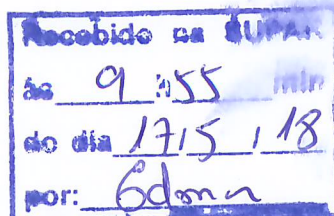 Recebido na SUPAR
às 9 h 55 min
do dia 17, 5, 18
por: Edmar